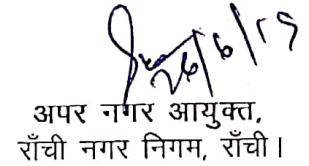 26/6/19
अपर नगर आयुक्त,
राँची नगर निगम, राँची।